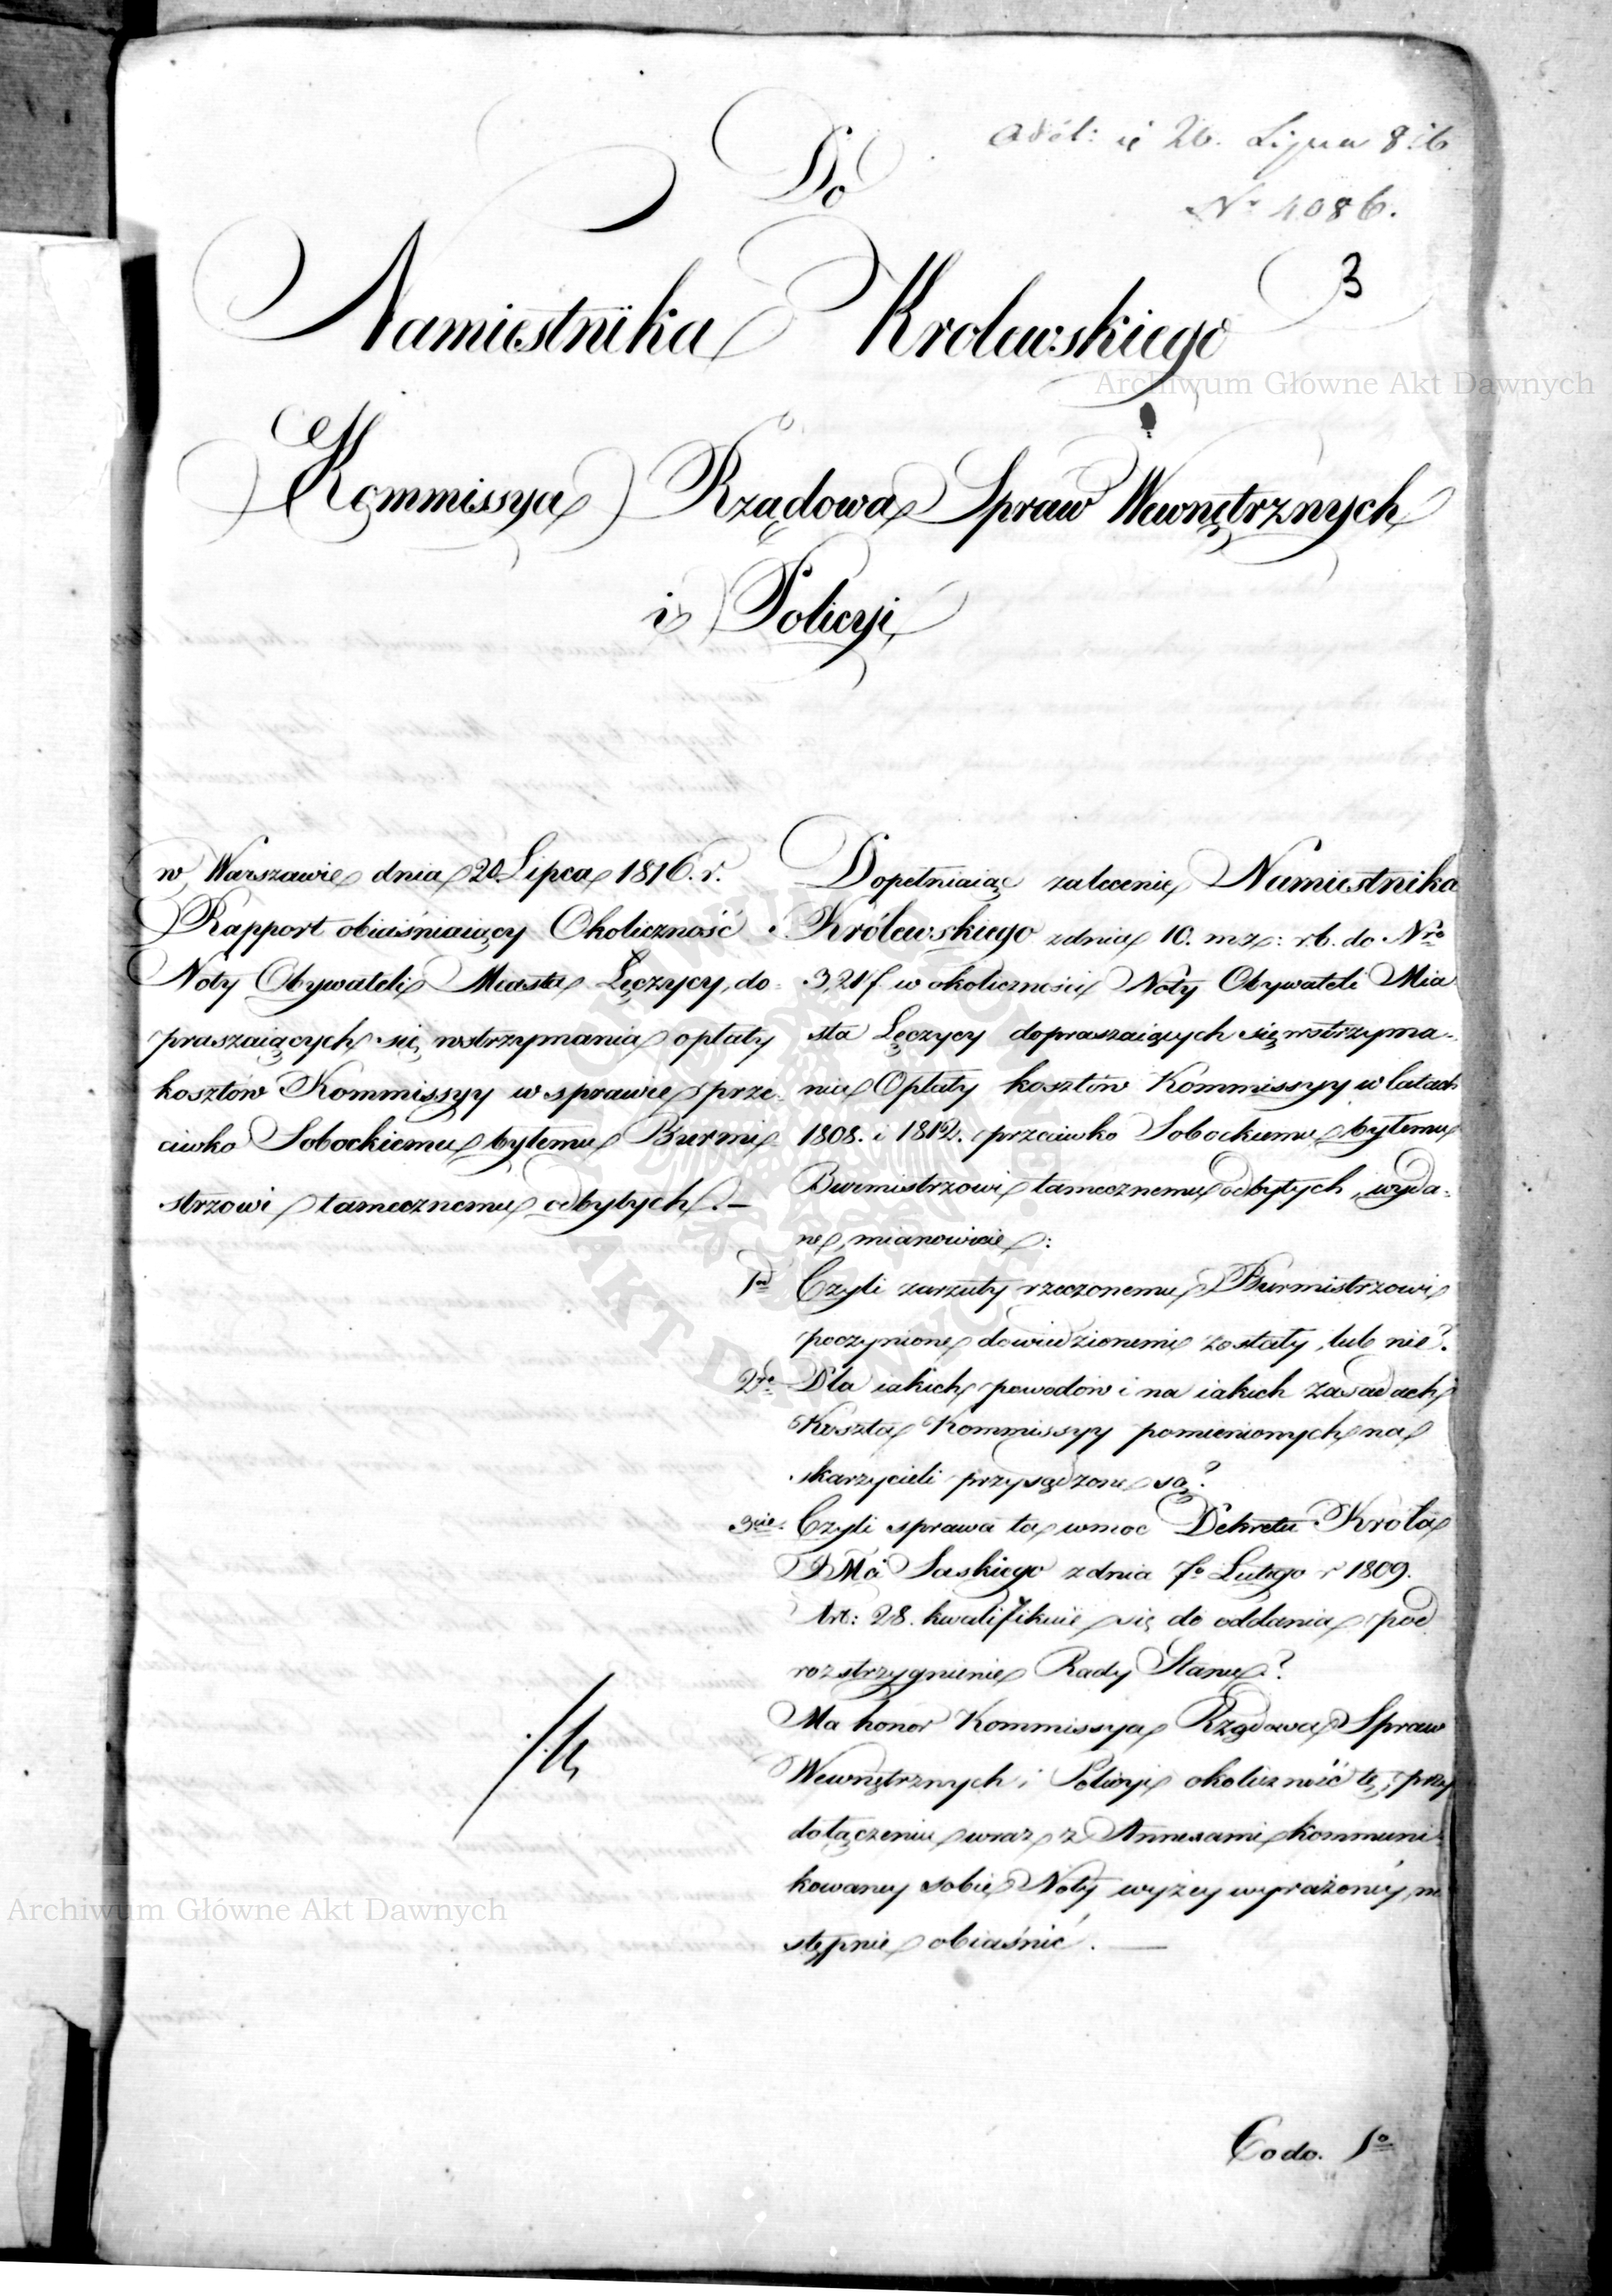 Do
Lipca 816
Nº 4086.
3
Namiestnika Krolewskiego
Kommissya Rządowa Spraw Wewnętrznych
i Policyi
w Warszawie dnia 20 Lipca 1816. r.
Rapport obiaśniaiący Okoliczność
Noty Obywateli Miasta Łęczycy, do-
praszaiących się wstrzymania opłaty
kosztów Kommissyy w sprawie prze-
ciwko Sobockiemu byłemu Burmi
strzowi tamecznemu odbytych. —
Dopełniaiąc zalecenie Namiestnika
Królewskiego z dnia 10. m. z: r. b. do Nro
w okoliczności Noty Obywateli Mia
sta Łęczycy dopraszaiących się wstrzyma-
nia Opłaty kosztów Kommissyy w latach
1808. i 1812. przeciwko Sobockiemu byłemu
Burmistrzowi tamecznemu odbytych, wyda-
ne, mianowicie:
1mo Czyli zarzuty rzeczonemu Burmistrzowi
poczynione dowiedzionemi zostały, lub nie?
2re Dla iakich powodów i na iakich zasadach
Koszta Kommissyy pomienionych na
skarzycieli przysądzone są?
3cie. Czyli sprawa ta w moc Dekretu Króla
JMci Saskiego z dnia 7º Lutego r 1809.
Art: 28. kwalifikuie się do oddania pod
rozstrzygnienie Rady Stanu?
Ma honor Kommissya Rządowa Spraw
Wewnętrznych i Policyi okoliczność tę, przy
dołączeniu wraz z Annexami kommuni-
kowaney sobie Noty wyżey wyrażoney, na
stępnie obiaśnić. —
Co do. 1º
Archiwum Główne Akt Dawnych
Archiwum Główne Akt Dawnych